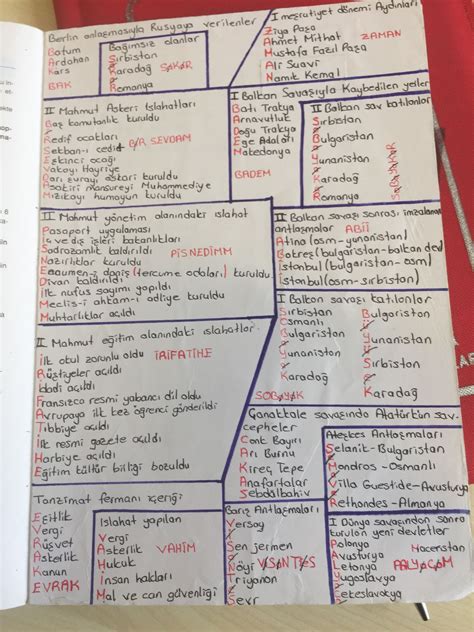 Berlin anlaşmasıyla Rusyaya verilenler
Batum
Ardahan
Kars
BAK
Bağımsız olanlar
Sırbistan
Karadağ
Romanya
SəKəR
I meşrutiyet dönemi Aydınları
Ziya Paşa
Ahmet Mithat
Mustafa Fazıl Paşa
Ali Suavi
Namık Kemal
ZAMAN
II Mahmut Askeri Islahatları
Baş komutanlık kuruldu
Redif ocakları
Sekban-ı cedit
Eşkinci ocağı
Vakayı Hayriye
Darı şurayı askeri kuruldu
Asakiri mansureyi Muhammediye
Mızıkayı humayun kuruldu
I Balkan Savaşıyla Kaybedilen yerler
Batı Trakya
Arnavutluk
Doğu Trakya
Ege Adaları
Makedonya
BADEM
II Balkan sav katılanlar
Sırbistan
Bulgaristan
Yunanistan
Karadağ
Romanya
II Mahmut yönetim alanındaki ıslahat
Pasaport uygulaması
İç ve dış işleri bakanlıkları
Sadrazamlık kaldırıldı
Nazırlıklar kuruldu
Encumen-i daniş (tercume odaları) kuruldu
Divan kaldırıldı
İlk nufus sayımı yapıldı
Meclis-i ahkam-ı adliye kuruldu
Muhtarlıklar açıldı
PiSNEDİMM
II Balkan savaşı sonrası imzalanan
antlaşmalar ABİİ
Atina (osm-yunanistan)
Bükreş (bulgaristan-balkan dev
İstanbul (bulgaristan-osm)
İstanbul (osm-sırbistan)
II Mahmut eğitim alanındaki ıslahatlar
İlk okul zorunlu oldu
Rüştiyeler açıldı
İdadi açıldı
Fransızca resmi yabancı dil oldu
Avrupaya ilk kez öğrenci gönderildi
Tıbbiye açıldı
İlk resmi gazete açıldı
Harbiye açıldı
Eğitim kültür birliği bozuldu
İRİFATİHE
I Balkan savaşı katılanlar
Sırbistan
Osmanlı
Bulgaristan
Yunanistan
Karadağ
Bulgaristan
Yunanistan
Sırbistan
Karadağ
Çanakkale savaşında Atatürkün sav-
cepheler
Conk Bayırı
Arı Burnu
Kireç Tepe
Anafartalar
Seddülbahir
Ateşkes Antlaşmaları
Selanik-Bulgaristan
Mondros-Osmanlı
Villa Guestide-Avusturya
Rethondes-Almanya
Tanzimat fermanı içeriği
Eşitlik
Vergi
Rüşvet
Askerlik
Kanun
EVRAK
Islahat yapılan
Vergi
Askerlik
Hukuk
İnsan hakları
Mal ve can güvenliği
VAHİM
Barış Antlaşmaları
Versay
Sen jermen
Nöyi
Triyanon
Sevr
I Dünya savaşından sonra
kurulan yeni devletler
Polonya
Avusturya
Letonya
Yugoslavya
Çekoslavakya
Macarstan